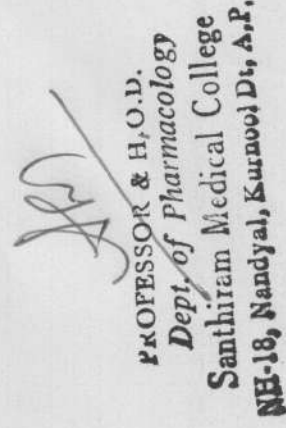 PROFESSOR & H.O.D.
Dept. of Pharmacology
Santhiram Medical College
NH-18, Nandyal, Kurnool Dt, A.P.